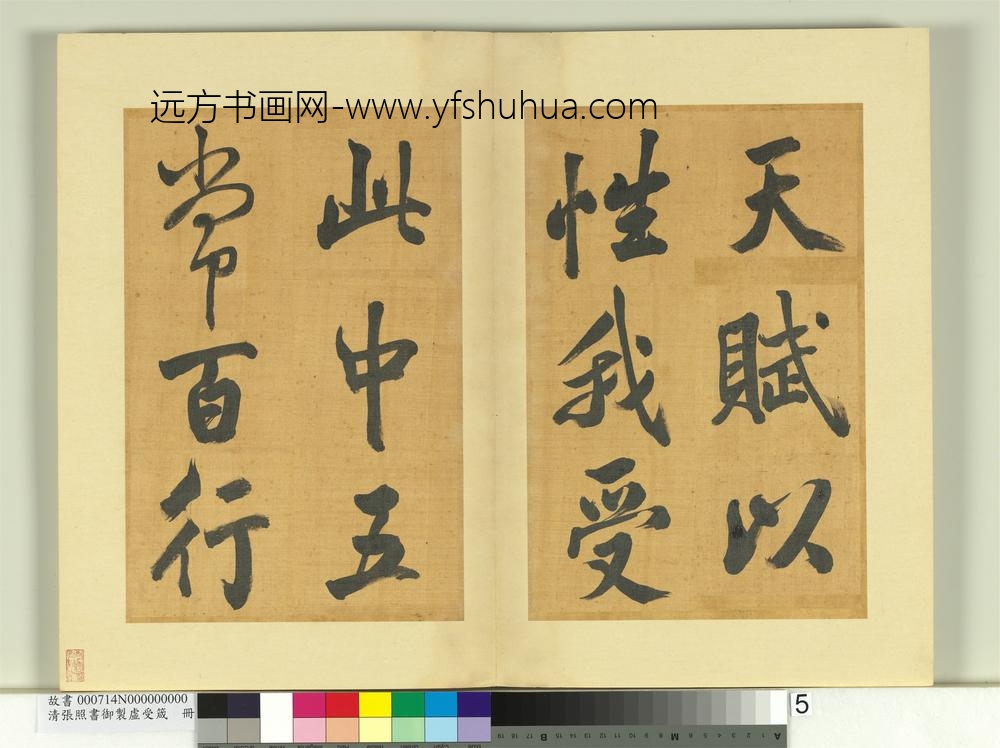 远方书画网-www.yfshuhua.com
天賦以
性我受
此中五
常百行
故書 000714N000000000
清張照書御製虛受箴 冊
5